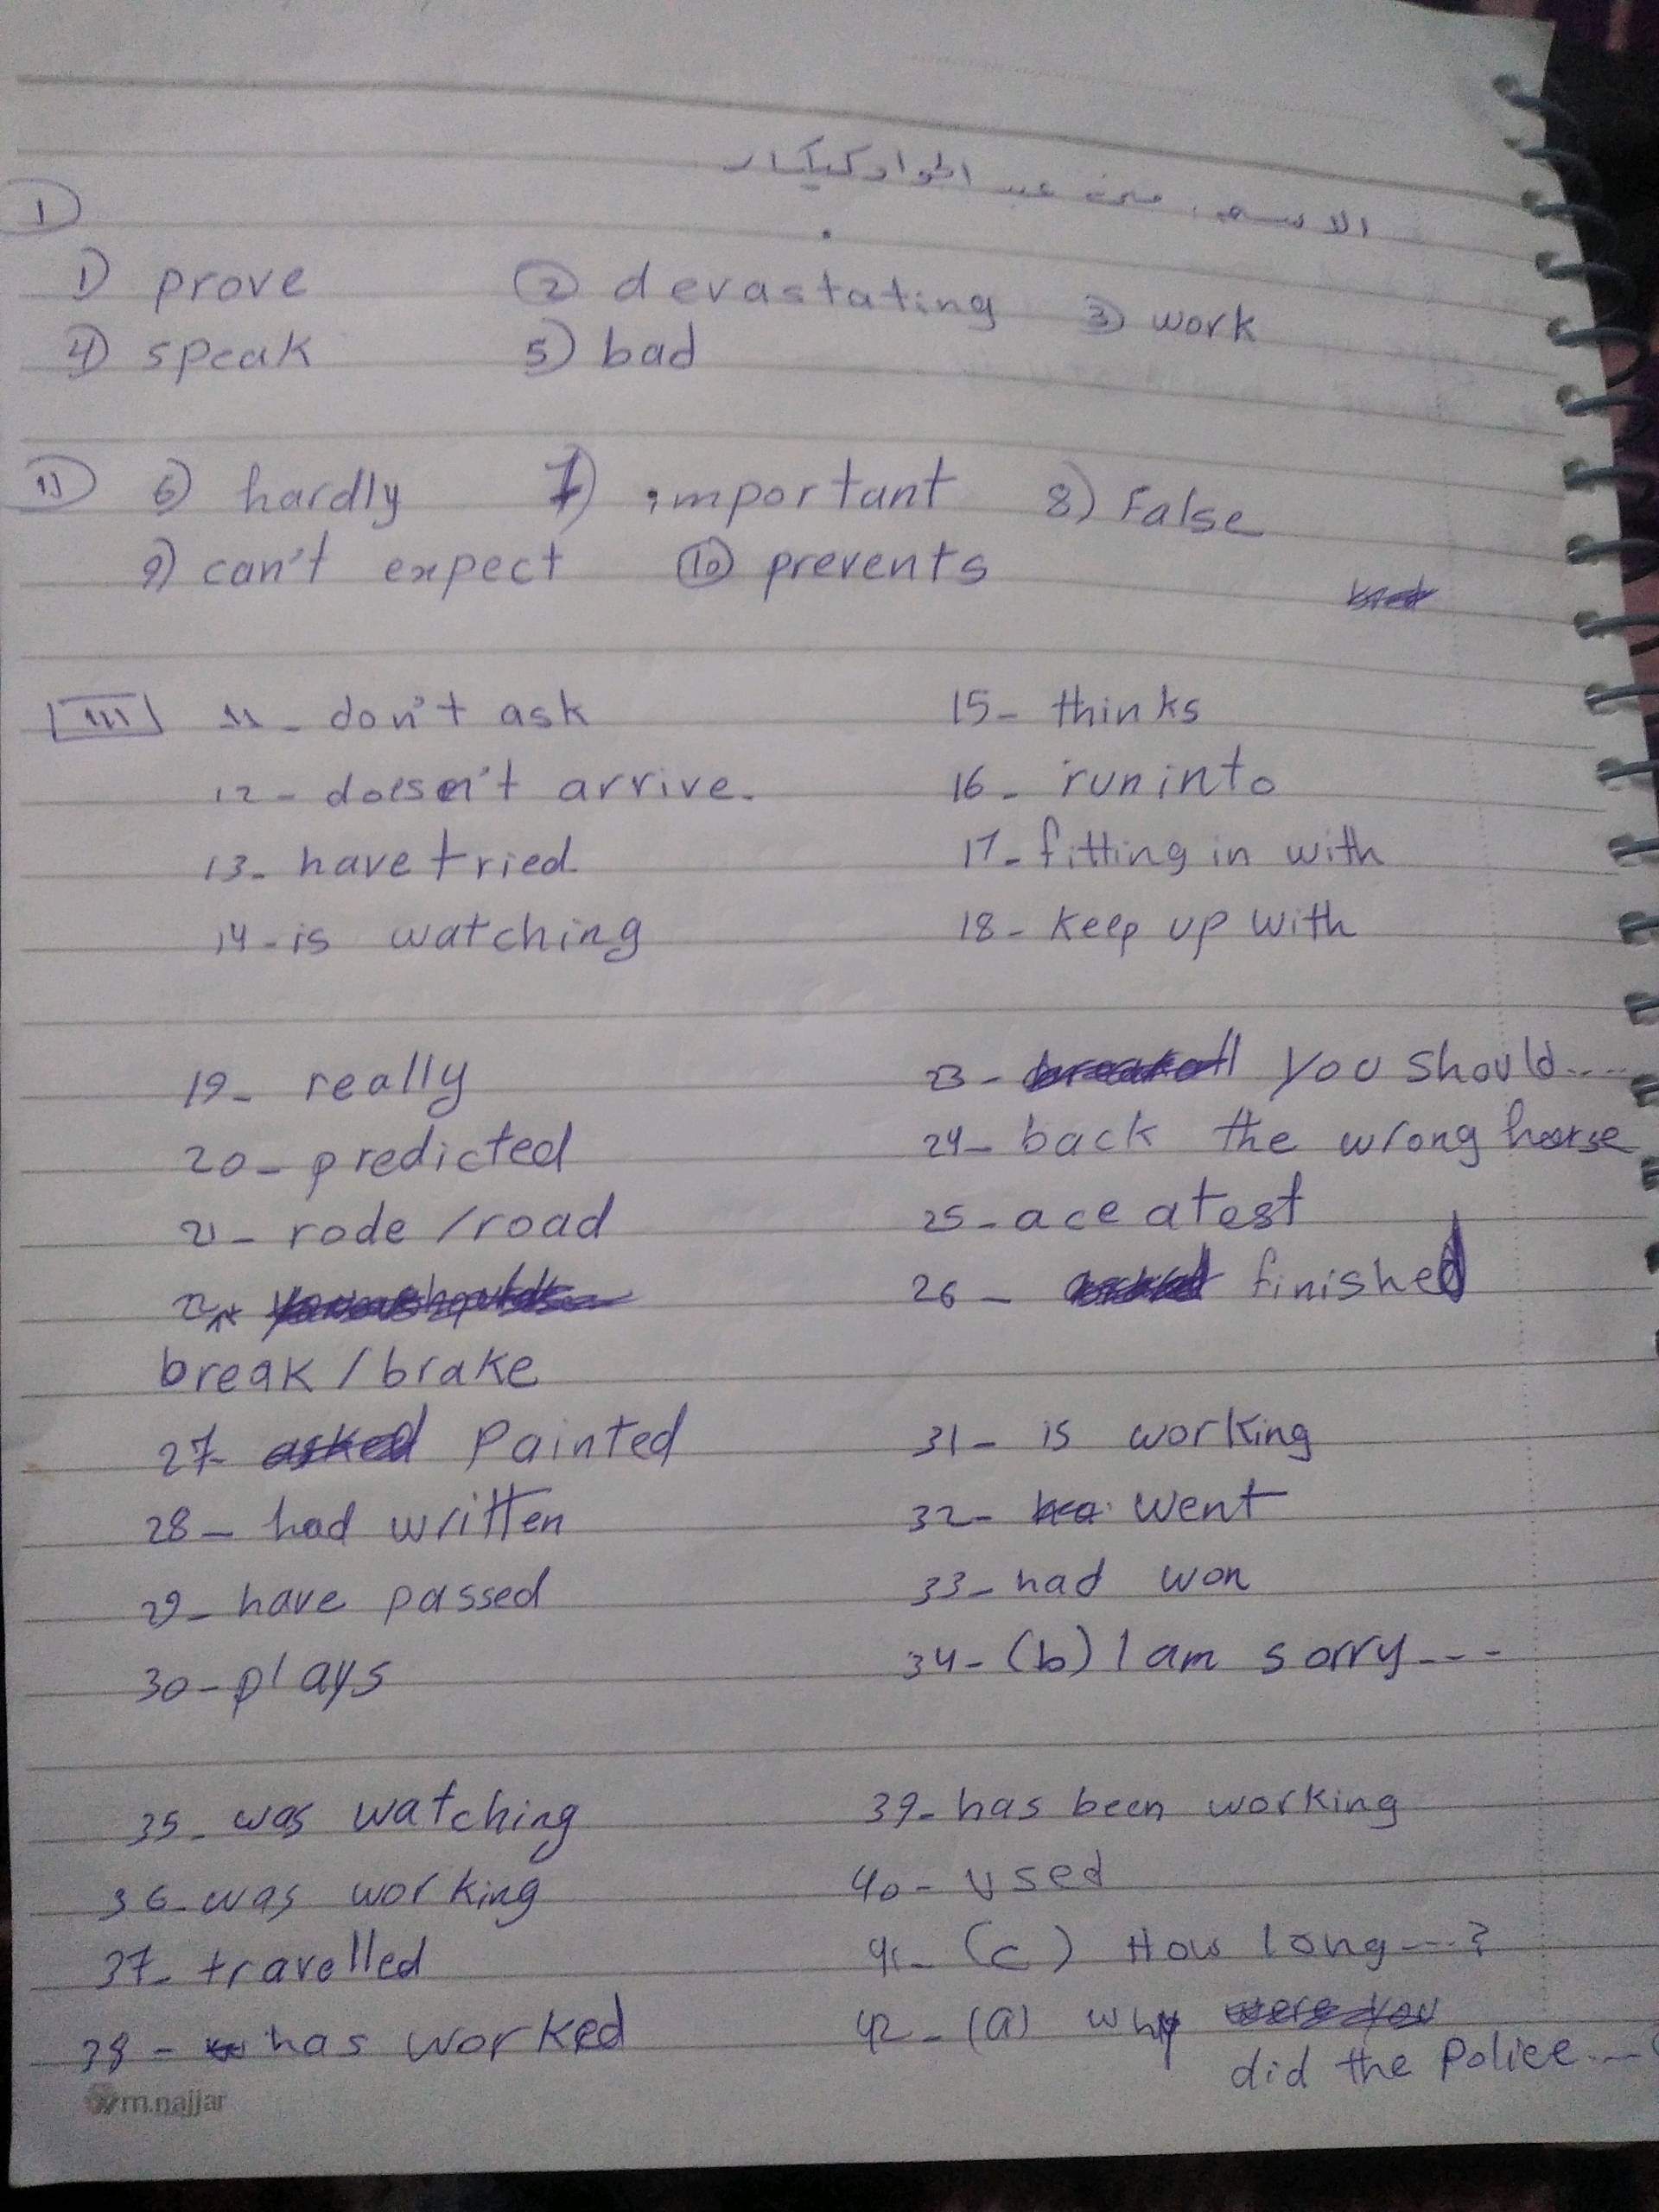 الاسم: منة عبد الجواد كيكار
I
1) prove 2) devastating 3) work
4) speak 5) bad
II 6) hardly 7) important 8) False
9) can't expect 10) prevents
III 11 - don't ask 15 - thinks
12 - doesn't arrive. 16 - run into
13 - have tried 17 - fitting in with
14 - is watching 18 - keep up with
19 - really 23 - you should....
20 - predicted 24 - back the wrong horse
21 - rode / road 25 - ace a test
22 - 26 - finished
break / brake
27 - asked painted 31 - is working
28 - had written 32 - went
29 - have passed 33 - had won
30 - plays 34 - (b) I am sorry ---
35 - was watching 39 - has been working
36 - was working 40 - used
37 - travelled 41 - (c) How long ---?
38 - has worked 42 - (a) why were you
did the police ---
m.najjar